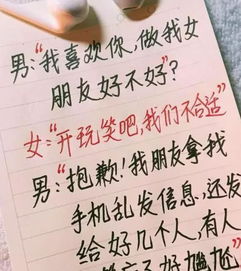 男:“我喜欢你,做我女
朋友好不好”?
女:“开玩笑吧,我们不合适”
男:“抱歉!我朋友拿我
手机乱发信息,还发
给好几个人,有人
好尴尬